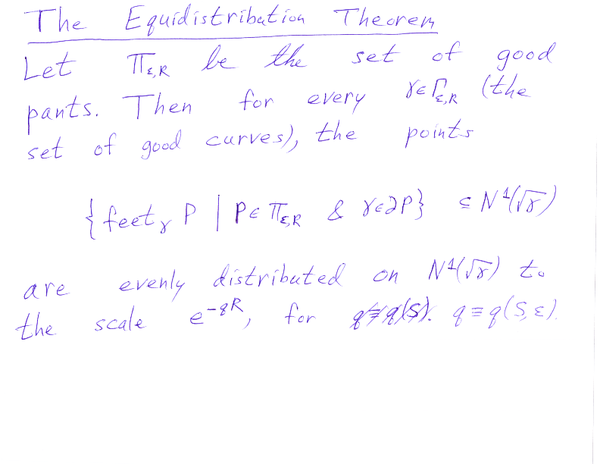 The Equidistribution Theorem
Let Π_{ε,R} be the set of good
pants. Then for every γ∈Γ_{ε,R} (the
set of good curves), the points
{feet_γ P | P∈Π_{ε,R} & γ∈∂P} ⊆ N^1(√γ)
are evenly distributed on N^1(√γ) to
the scale e^{-qR}, for q≡q(S,ε).